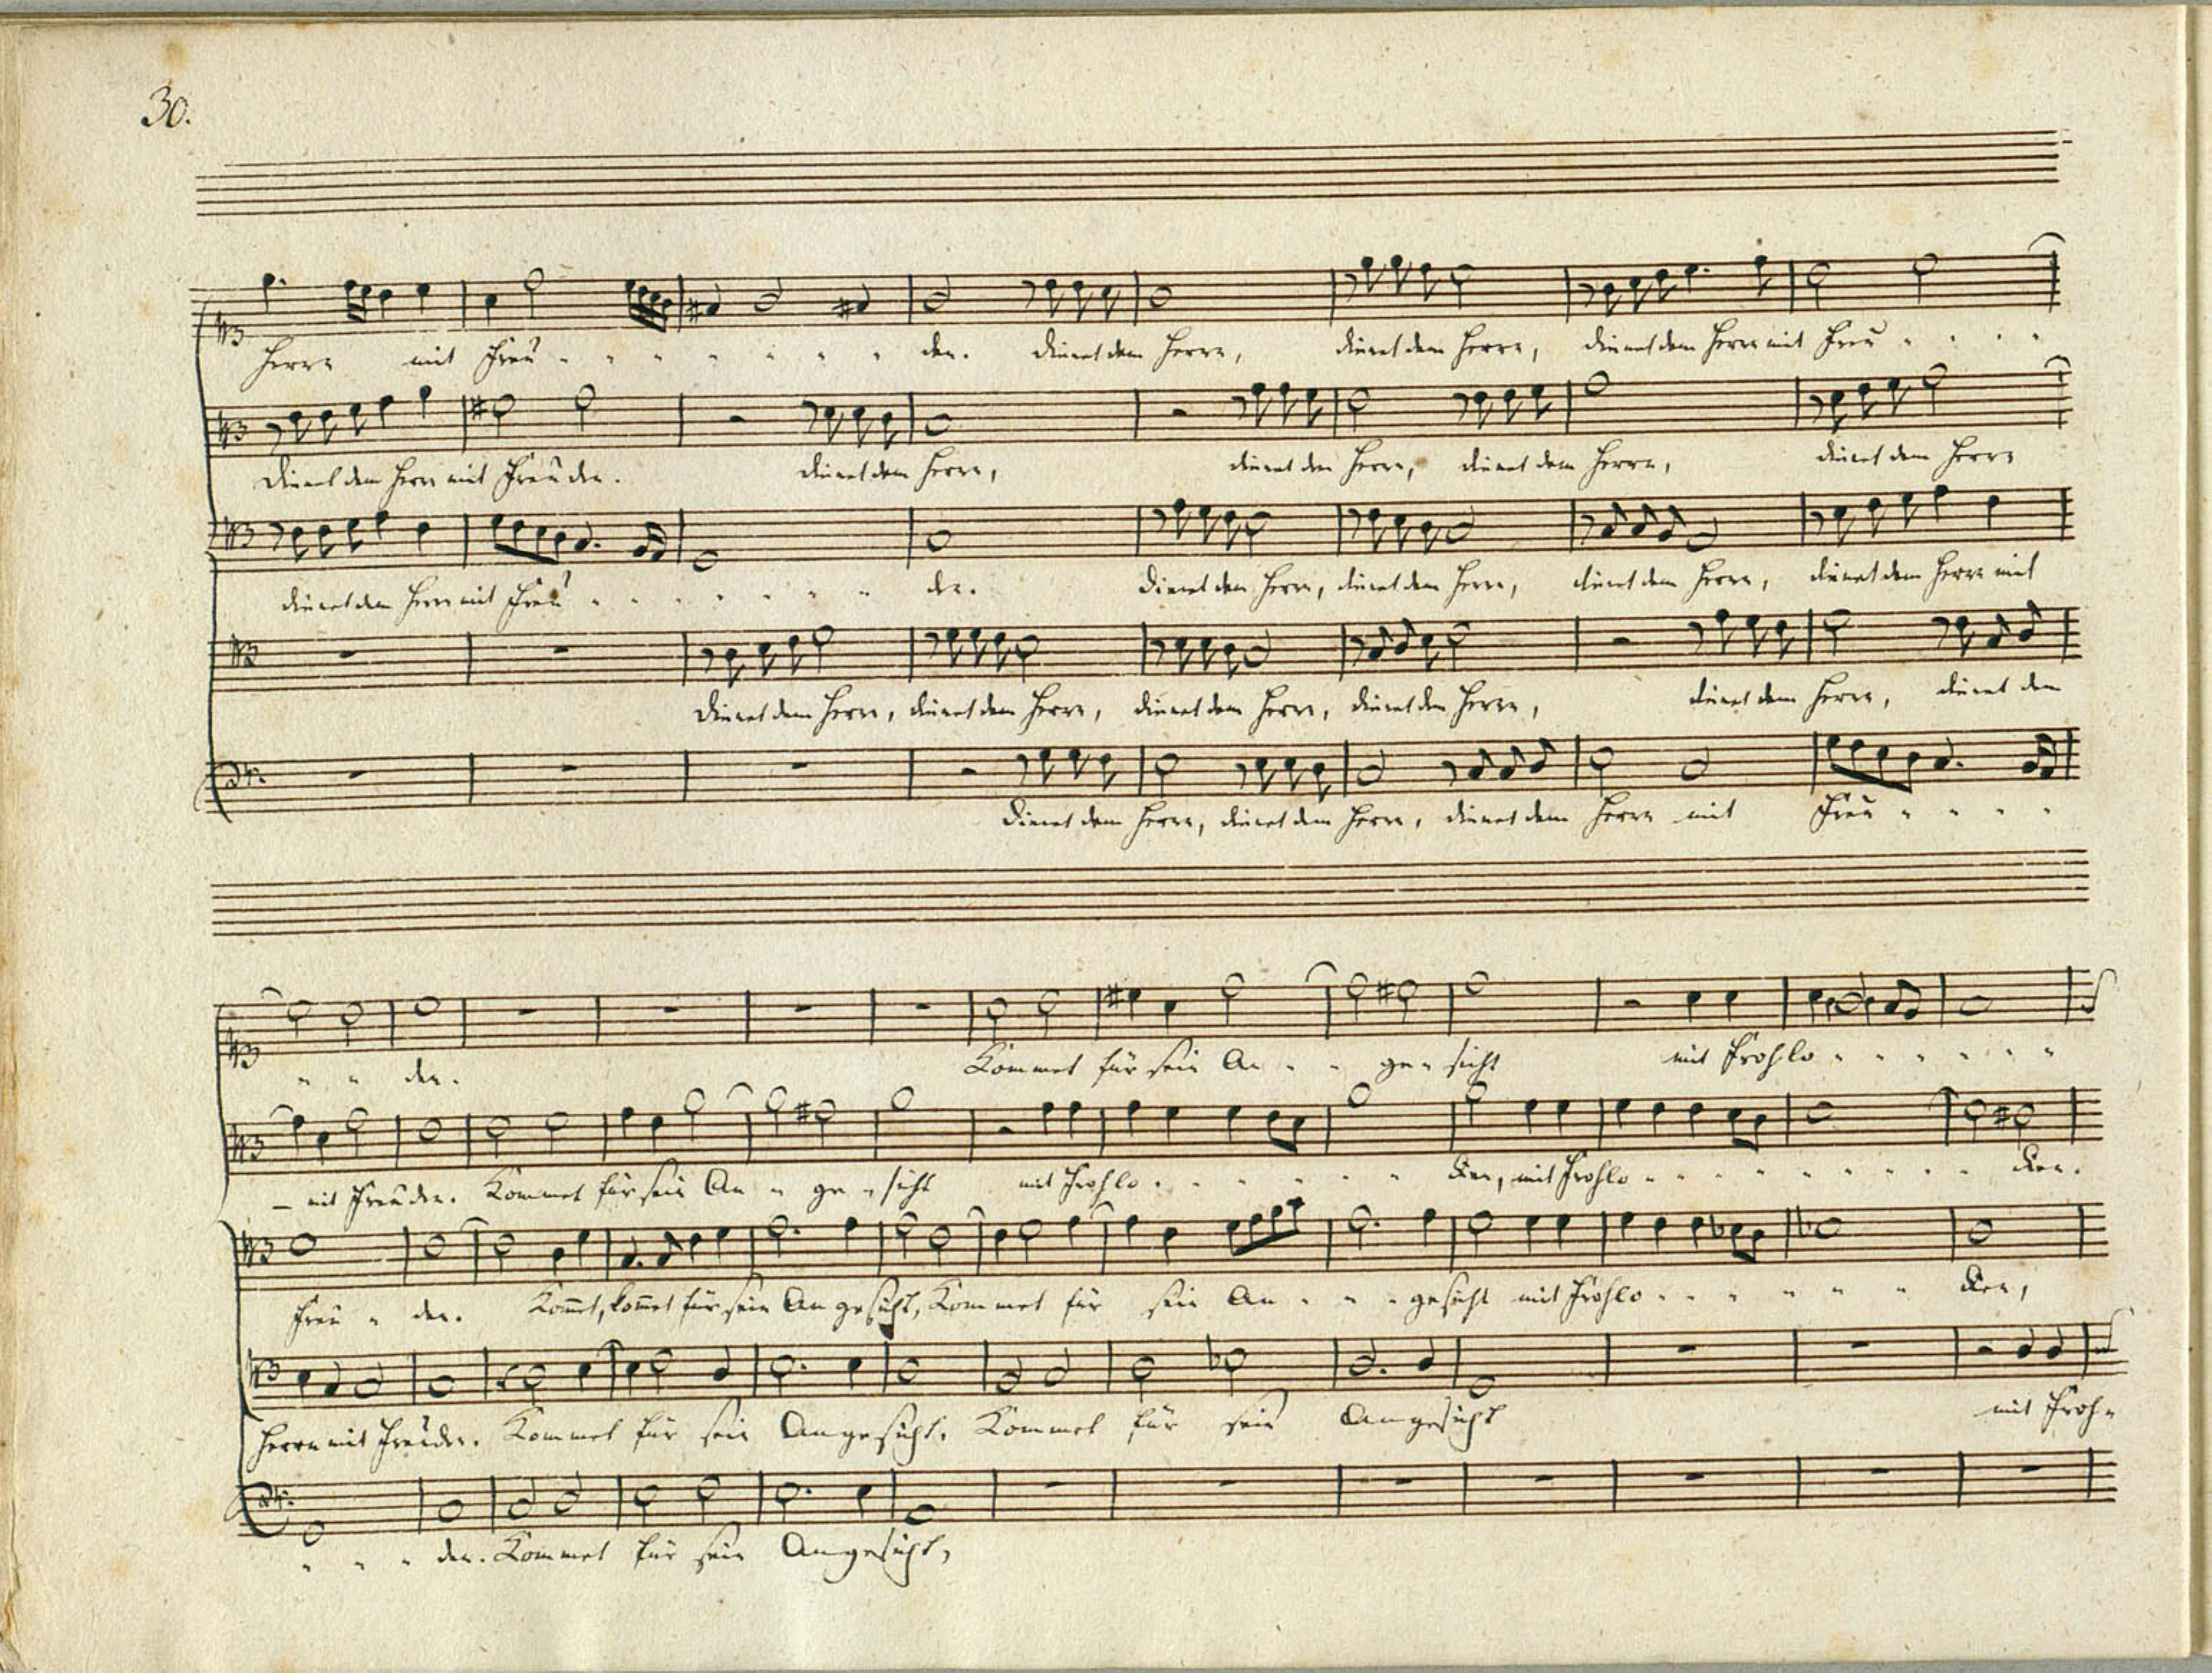 30.
Herrn mit Freu - - - - - - - den. dienet dem Herrn, dienet dem Herrn, dienet dem Herrn mit Freu - - - -
Dienet dem Herrn mit Freuden. dienet dem Herrn, dienet dem Herrn, dienet dem Herrn, dienet dem Herrn
dienet dem Herrn mit Freu - - - - - - - den. dienet dem Herrn, dienet dem Herrn, dienet dem Herrn, dienet dem Herrn mit
Dienet dem Herrn, dienet dem Herrn, dienet dem Herrn, dienet dem Herrn, dienet dem Herrn, dienet dem
Dienet dem Herrn, dienet dem Herrn, dienet dem Herrn mit Freu - - - -
- - den. Kommet für sein An - - ge - sicht mit Frohlo - - - - - -
- mit Freuden. Kommet für sein An - ge - sicht mit Frohlo - - - - - - cken, mit Frohlo - - - - - - - - - cken.
Freu - den. Kom̄et, kom̄et für sein Angesicht, Kommet für sein An - - - gesicht mit Frohlo - - - - - - cken,
Herrn mit Freuden. Kommet für sein Angesicht. Kommet für sein Angesicht mit Froh -
- - - den. Kommet für sein Angesicht,